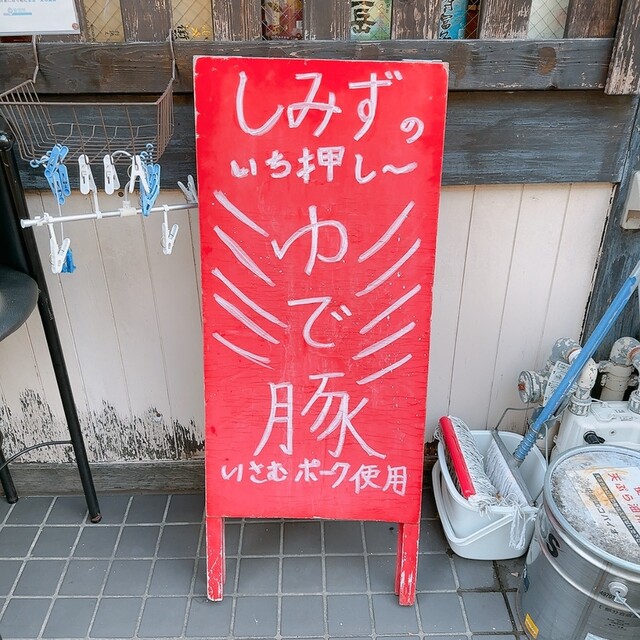 しみずの
いち押し〜
ゆで
豚
いさむポーク使用